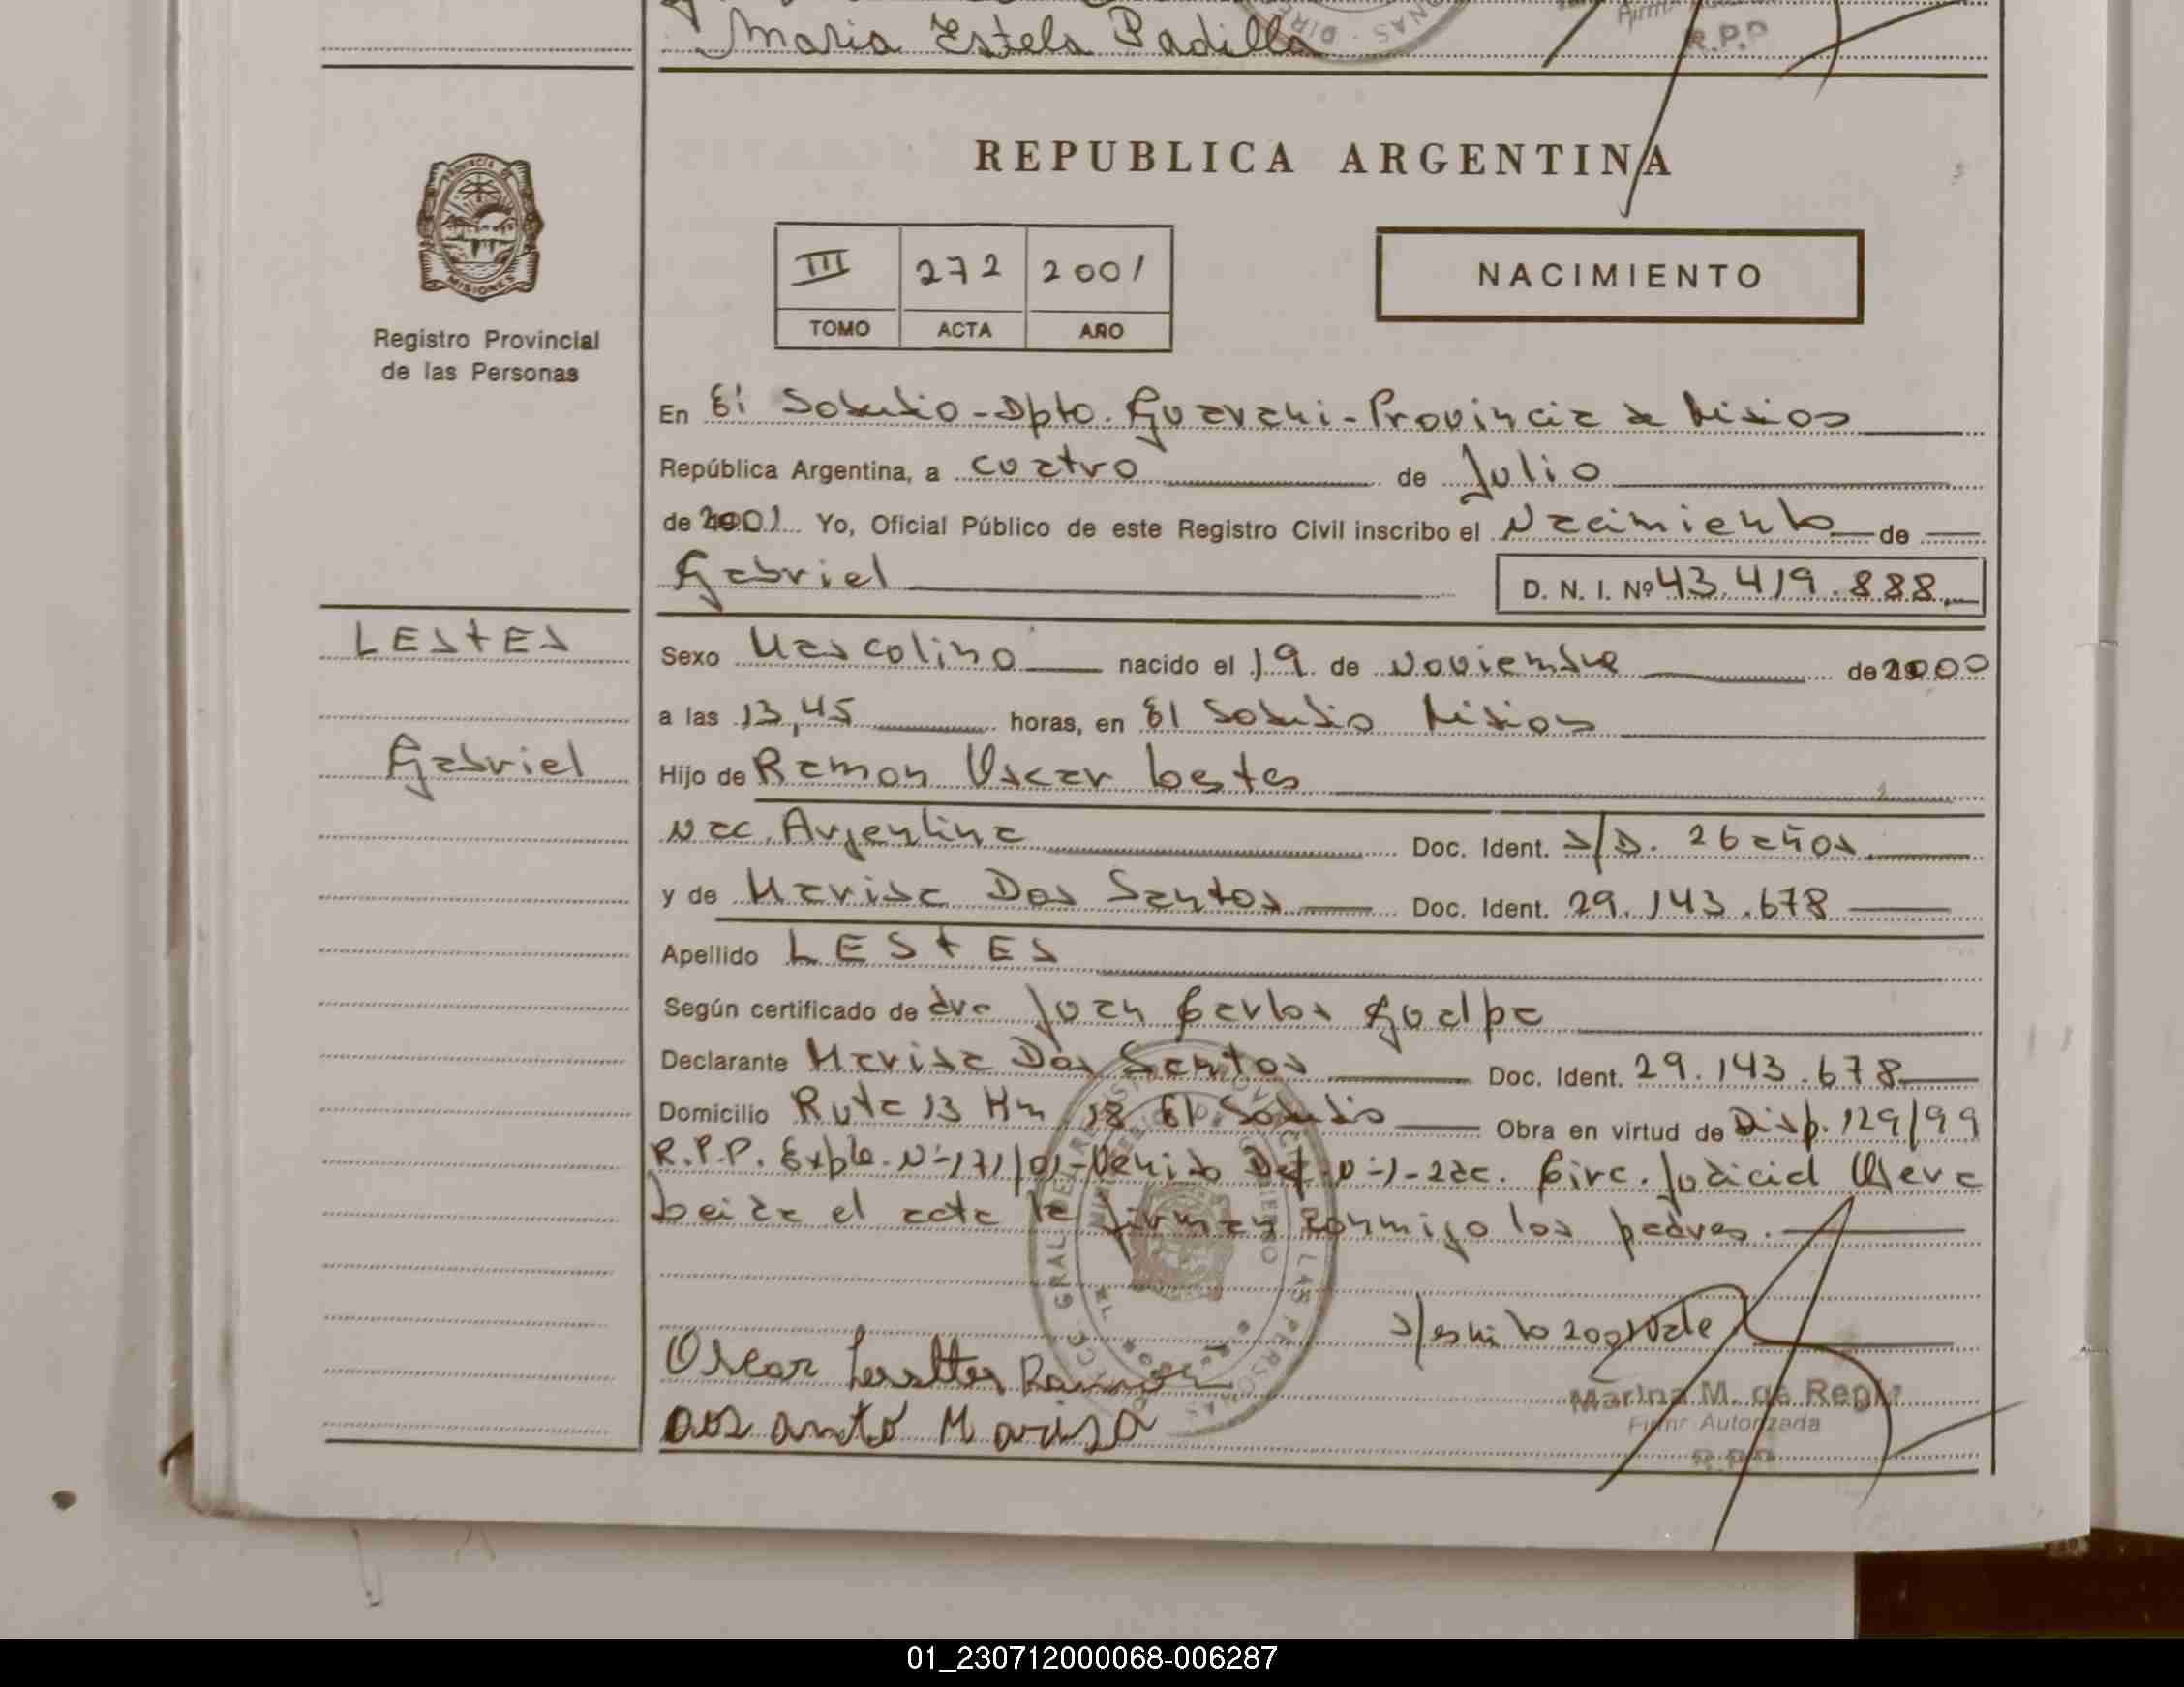 Maria Estela Padilla
R.P.P
REPUBLICA ARGENTINA
PROVINCIA DE
MISIONES
Registro Provincial
de las Personas
III 272 2001
TOMO ACTA AÑO
NACIMIENTO
En El Soberbio - Dpto. Guarani - Provincia de Misiones
República Argentina, a cuatro de Julio
de 2001 Yo, Oficial Público de este Registro Civil inscribo el Nacimiento de
Gabriel D. N. I. Nº 43.419.888
LESTES
Gabriel
Sexo Masculino nacido el 19 de Noviembre de 2000
a las 13,45 horas, en El Soberbio Misiones
Hijo de Ramon Oscar Lestes
Nac. Argentina Doc. Ident. S/D. 26 años
y de Marisa Dos Santos Doc. Ident. 29.143.678
Apellido LESTES
Según certificado de dro Juan Carlos
Declarante Marisa Dos Santos Doc. Ident. 29.143.678
Domicilio Ruta 13 Km 18 El Soberbio Obra en virtud de Disp. 129/99
R.P.P. Expte. Nº 171/01 - Def. Nº 1 - 2da. Circ. Judicial Obera
Leida el acta la firman conmigo los padres.
Oscar Ramon
Marisa
Marina M. de
Firma Autorizada
R.P.P
01_230712000068-006287